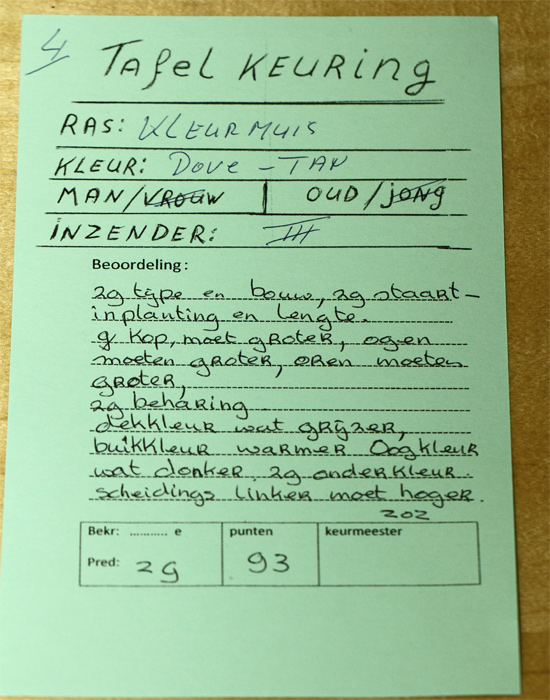 4
TAFEL KEURING
RAS: KLEURMUIS
KLEUR: DOVE - TAN
MAN/VROUW | OUD/JONG
INZENDER: III
Beoordeling:
zg type en bouw, zg staart-
inplanting en lengte.
g kop, moet groter, ogen
moeten groter, oren moeten
groter,
zg beharing
dekkleur wat grijzer,
buikkleur warmer Oogkleur
wat donker. zg onderkleur.
scheidings linker moet hoger.
zoz
Bekr: ............ e punten keurmeester
Pred: zg 93